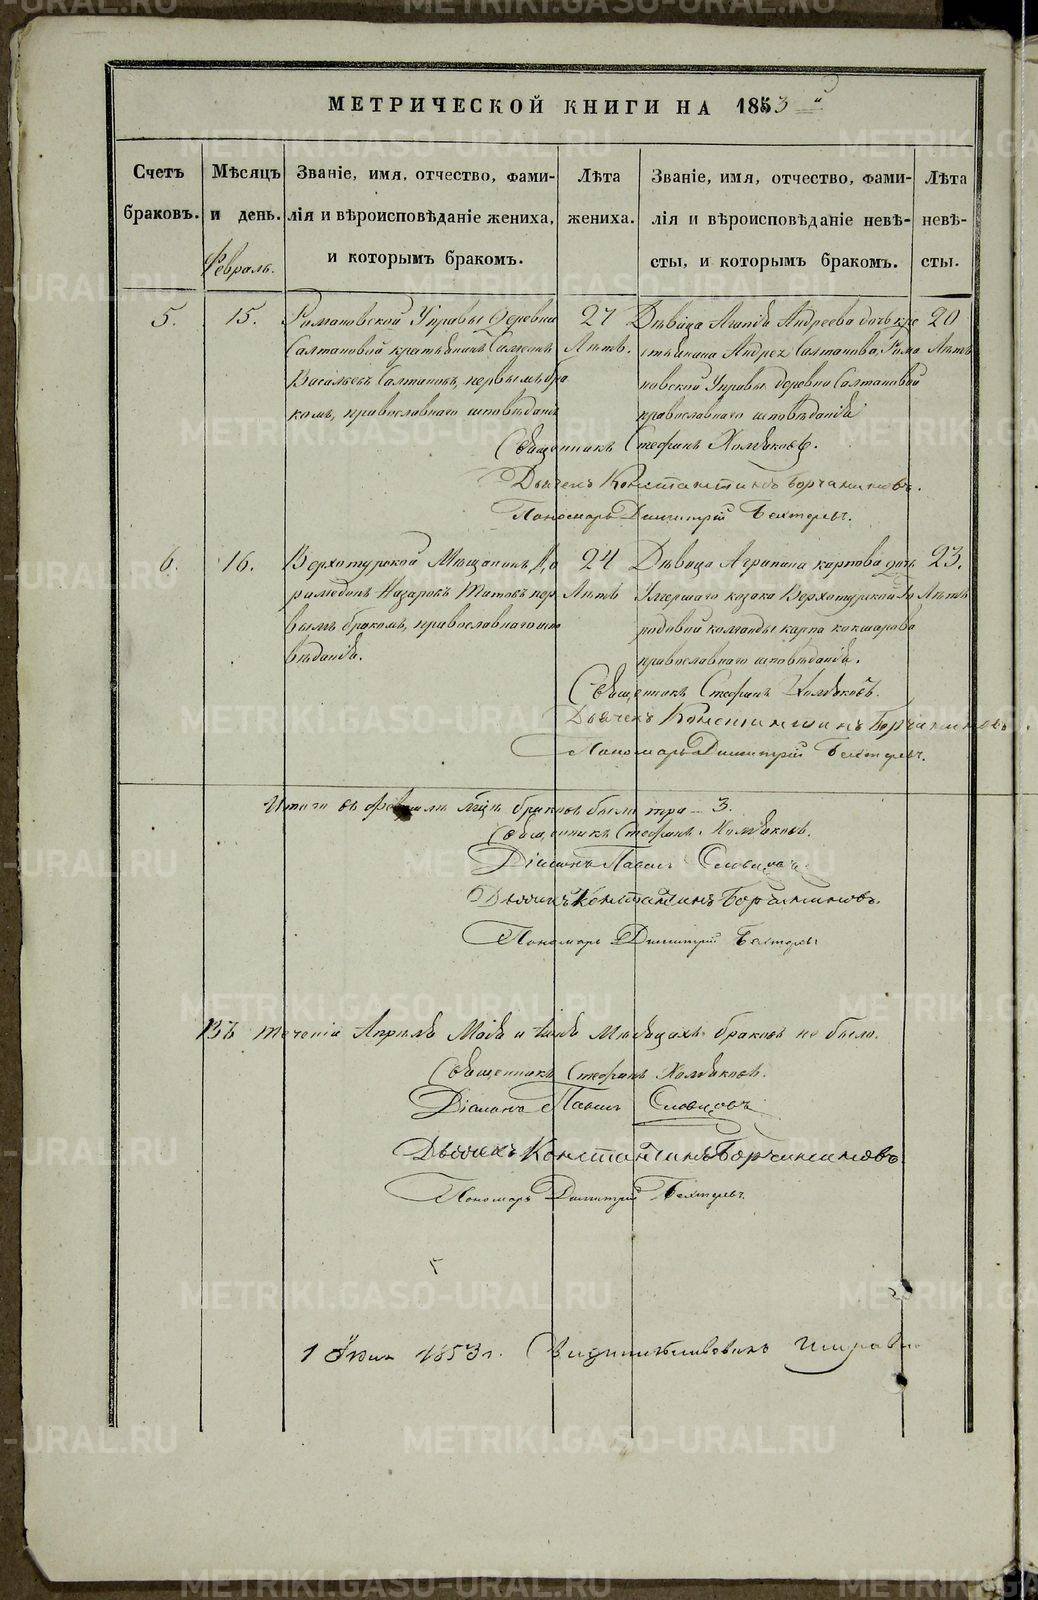 МЕТРИЧЕСКОЙ КНИГИ НА 1853й
Счетъ браковъ.
Мѣсяцъ и день.
Званіе, имя, отчество, фами-
лія и вѣроисповѣданіе жениха,
и которымъ бракомъ.
Лѣта жениха.
Званіе, имя, отчество, фами-
лія и вѣроисповѣданіе невѣ-
сты, и которымъ бракомъ.
Лѣта невѣ-
сты.
Февраль.
5.
15.
Романовской Управы деревни
Салтановой крестьянинъ Симеонъ
Васильевъ Салтановъ, первымъ бра
комъ, православнаго исповѣданія
27
Лѣтъ.
Дѣвица Агапія Андреева дочь кре
стьянина Андрея Салтанова, Рома
новской Управы деревни Салтановой
православнаго исповѣданія
20
Лѣтъ
Священникъ Стефанъ Холмаковъ.
Дьячекъ Константинъ Борчаниновъ.
Пономарь Димитрій Бехтеревъ.
6.
16.
Верхотурской Мѣщанинъ
Назаровъ Титовъ пер
вымъ бракомъ, православнаго испо
вѣданія.
24
Лѣтъ
Дѣвица Агрипина Карпова дочь
Умершаго казака Верхотурской Го
родовой команды Карпа Кокшарова
православнаго исповѣданія.
23.
Лѣтъ
Священникъ Стефанъ Холмаковъ.
Дьячекъ Константинъ Борчаниновъ.
Пономарь Димитрій Бехтеревъ.
Итого въ Февралѣ мцѣ браковъ было три - 3.
Священникъ Стефанъ Холмаковъ.
Діаконъ Павелъ Словцовъ
Дьячикъ Константинъ Борчаниновъ.
Пономарь Димитрій Бехтеревъ
Въ теченіи Апрѣля Маія и Іюня Мѣсяцахъ браковъ не было.
Священникъ Стефанъ Холмаковъ.
Діаконъ Павелъ Словцовъ
Дьячекъ Константинъ Борчаниновъ.
Пономарь Димитрій Бехтеревъ.
1 1853 г.
METRIKI.GASO-URAL.RU